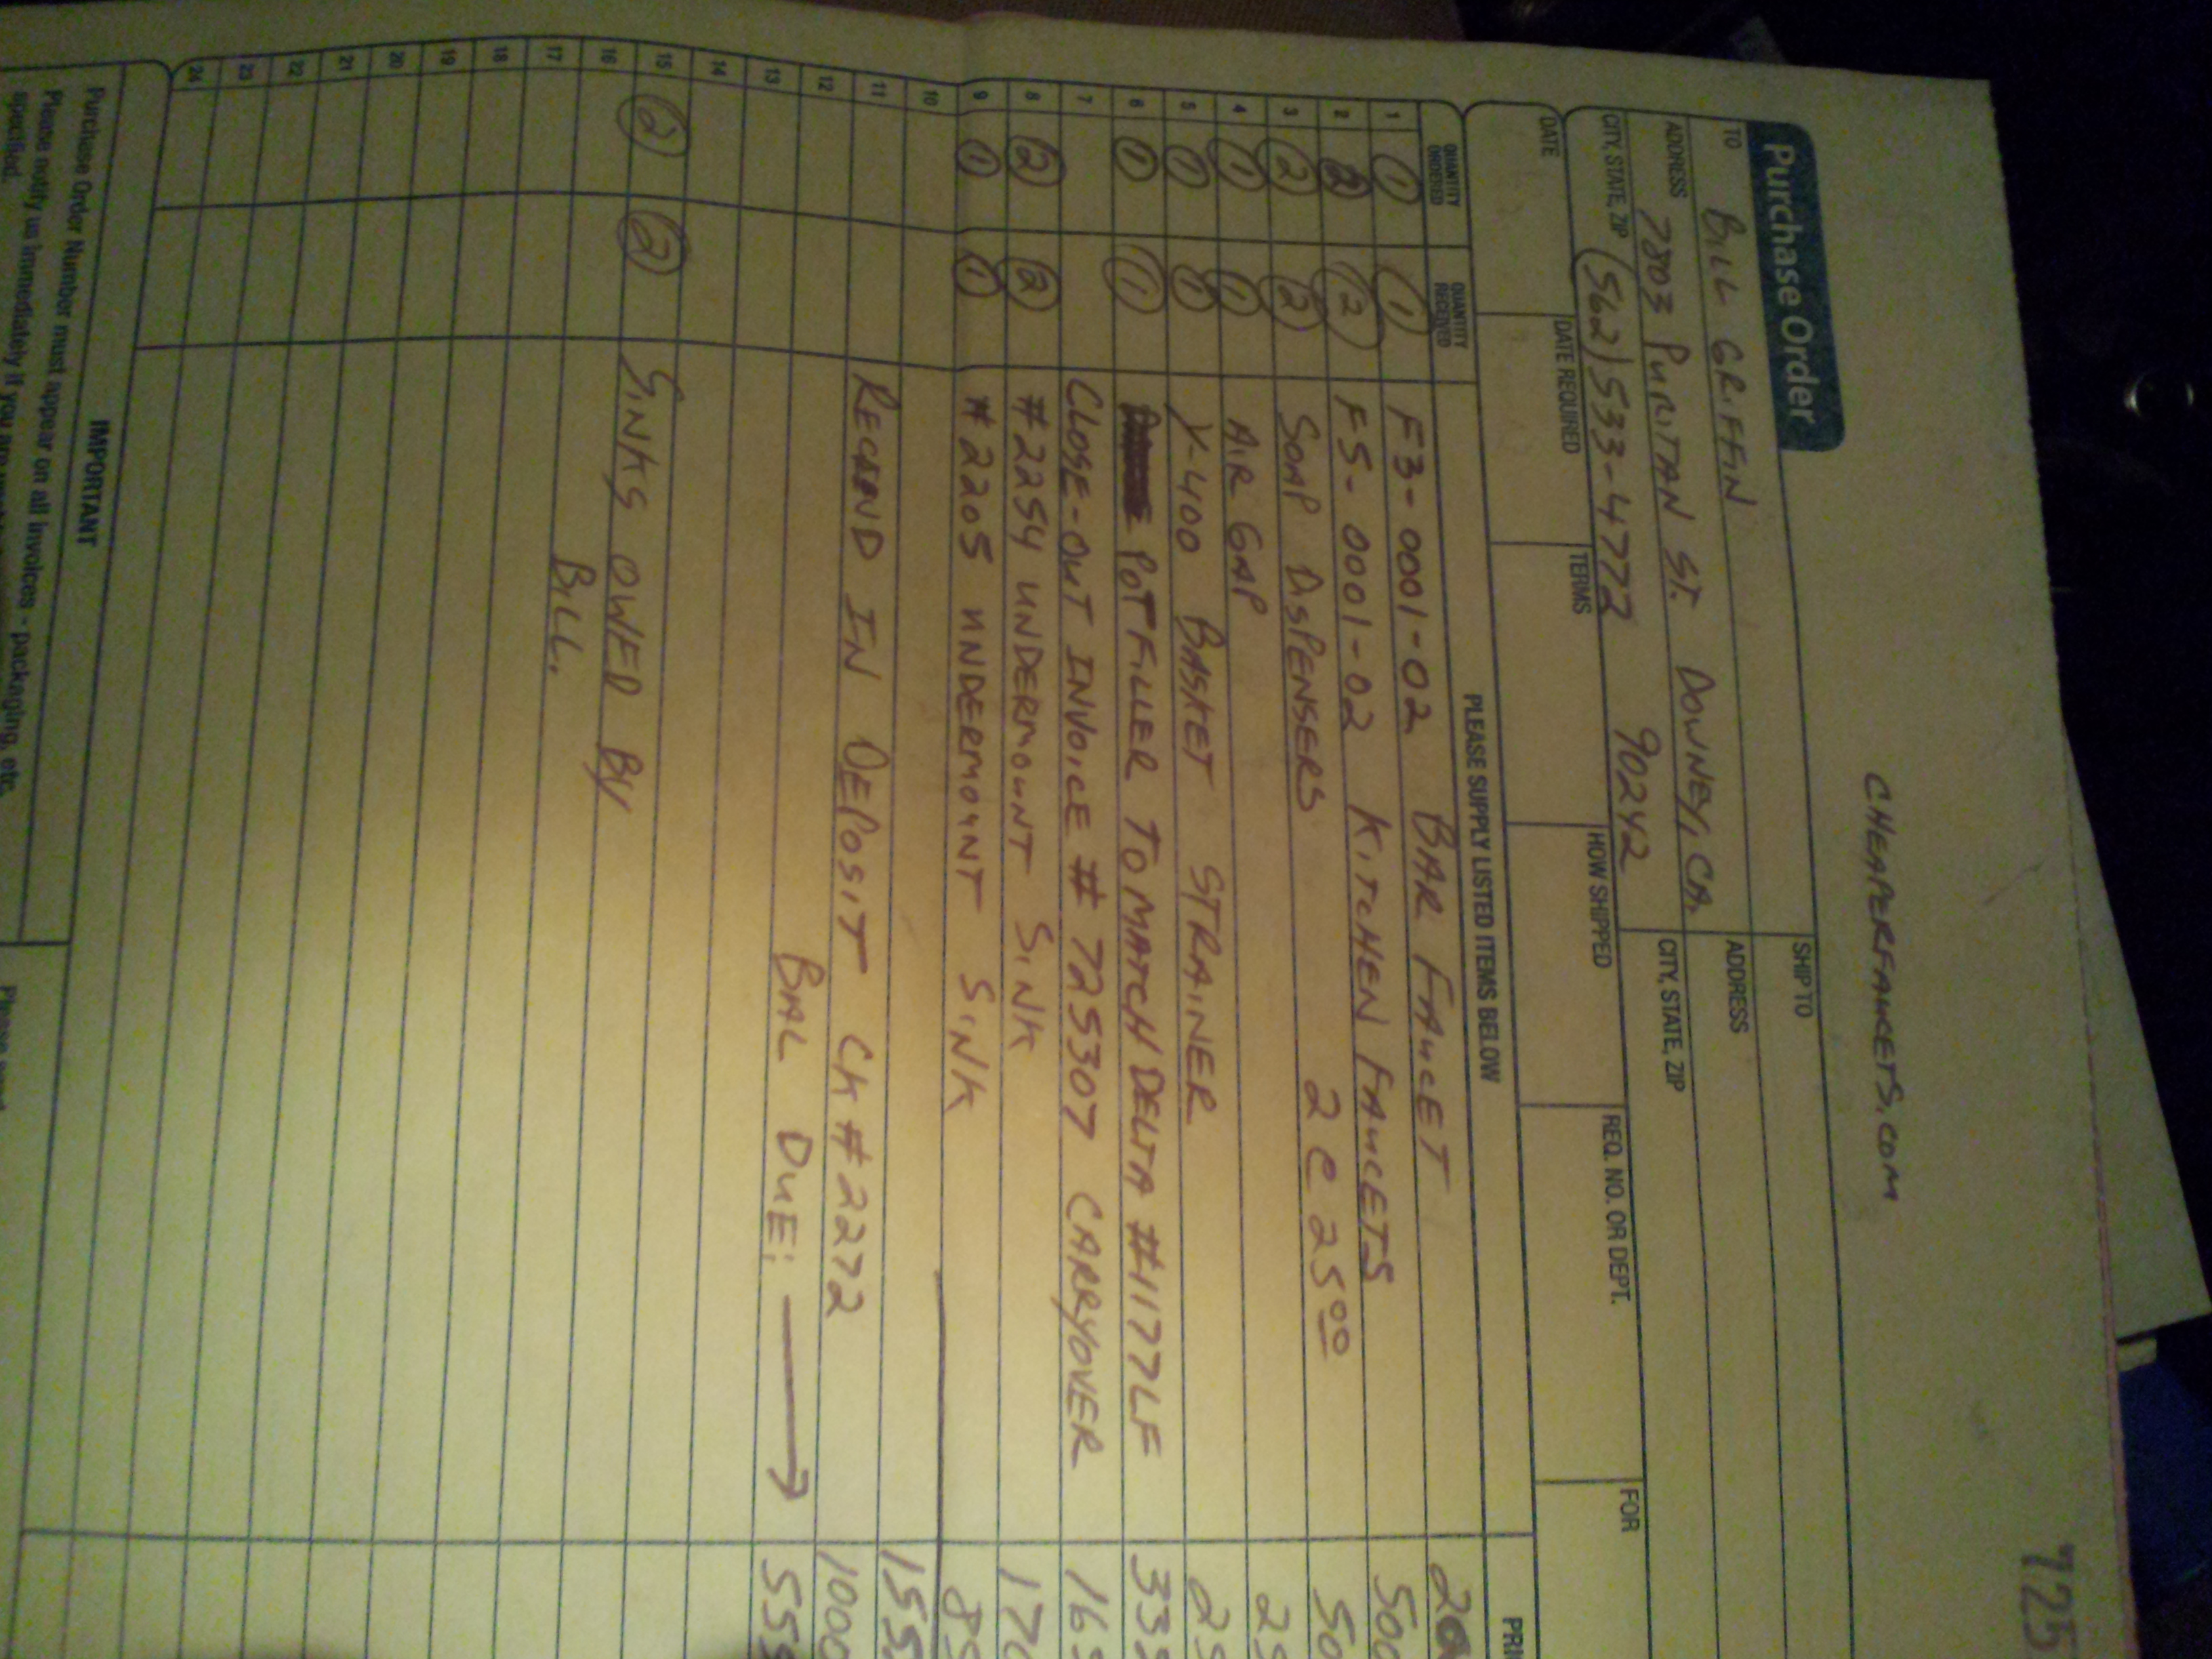 725
CHEAPERFAUCETS.COM
Purchase Order
TO BILL GRIFFIN SHIP TO
ADDRESS 7803 PURITAN ST. DOWNEY, CA. ADDRESS
CITY, STATE, ZIP (562) 533-4772 90242 CITY, STATE, ZIP
DATE DATE REQUIRED TERMS HOW SHIPPED REQ. NO. OR DEPT. FOR
QUANTITY ORDERED QUANTITY RECEIVED PLEASE SUPPLY LISTED ITEMS BELOW
1 1 1 F3-0001-02 BAR FAUCET
2 2 2 F5-0001-02 KITCHEN FAUCETS 500
3 2 2 SOAP DISPENSERS 2 @ 25 00 50
4 1 1 AIR GAP 25
5 1 1 Y-400 BASKET STRAINER 25
6 1 1 POT FILLER TO MATCH DELTA #1177LF
7 CLOSE-OUT INVOICE # 725307 CARRYOVER
8 2 2 #2254 UNDERMOUNT SINK
9 1 1 #2205 UNDERMOUNT SINK
10
11 RECAND IN DEPOSIT CK #2272 1000
12
13 BAL DUE:
14
15 2 2 SINKS OWED BY
16
17 BILL.
18
19
20
21
22
23
24
IMPORTANT
Purchase Order Number must appear on all invoices - packaging, etc.
Please notify us immediately if you are
specified.
Please